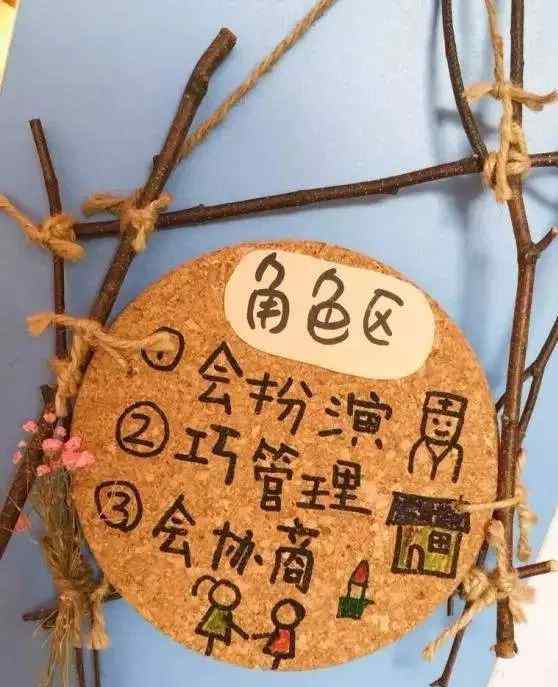 角色区
①会扮演
②巧管理
③会协商